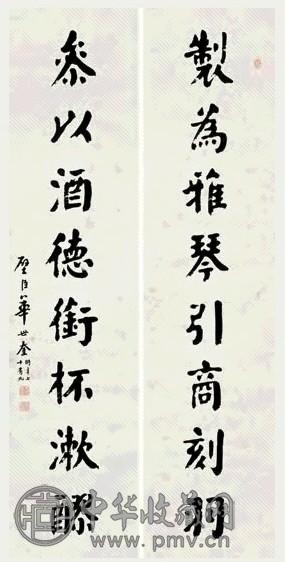 製為雅琴引商刻羽
參以酒德銜杯漱醪
璧臣華世奎
中华收藏网
www.pmv.cn